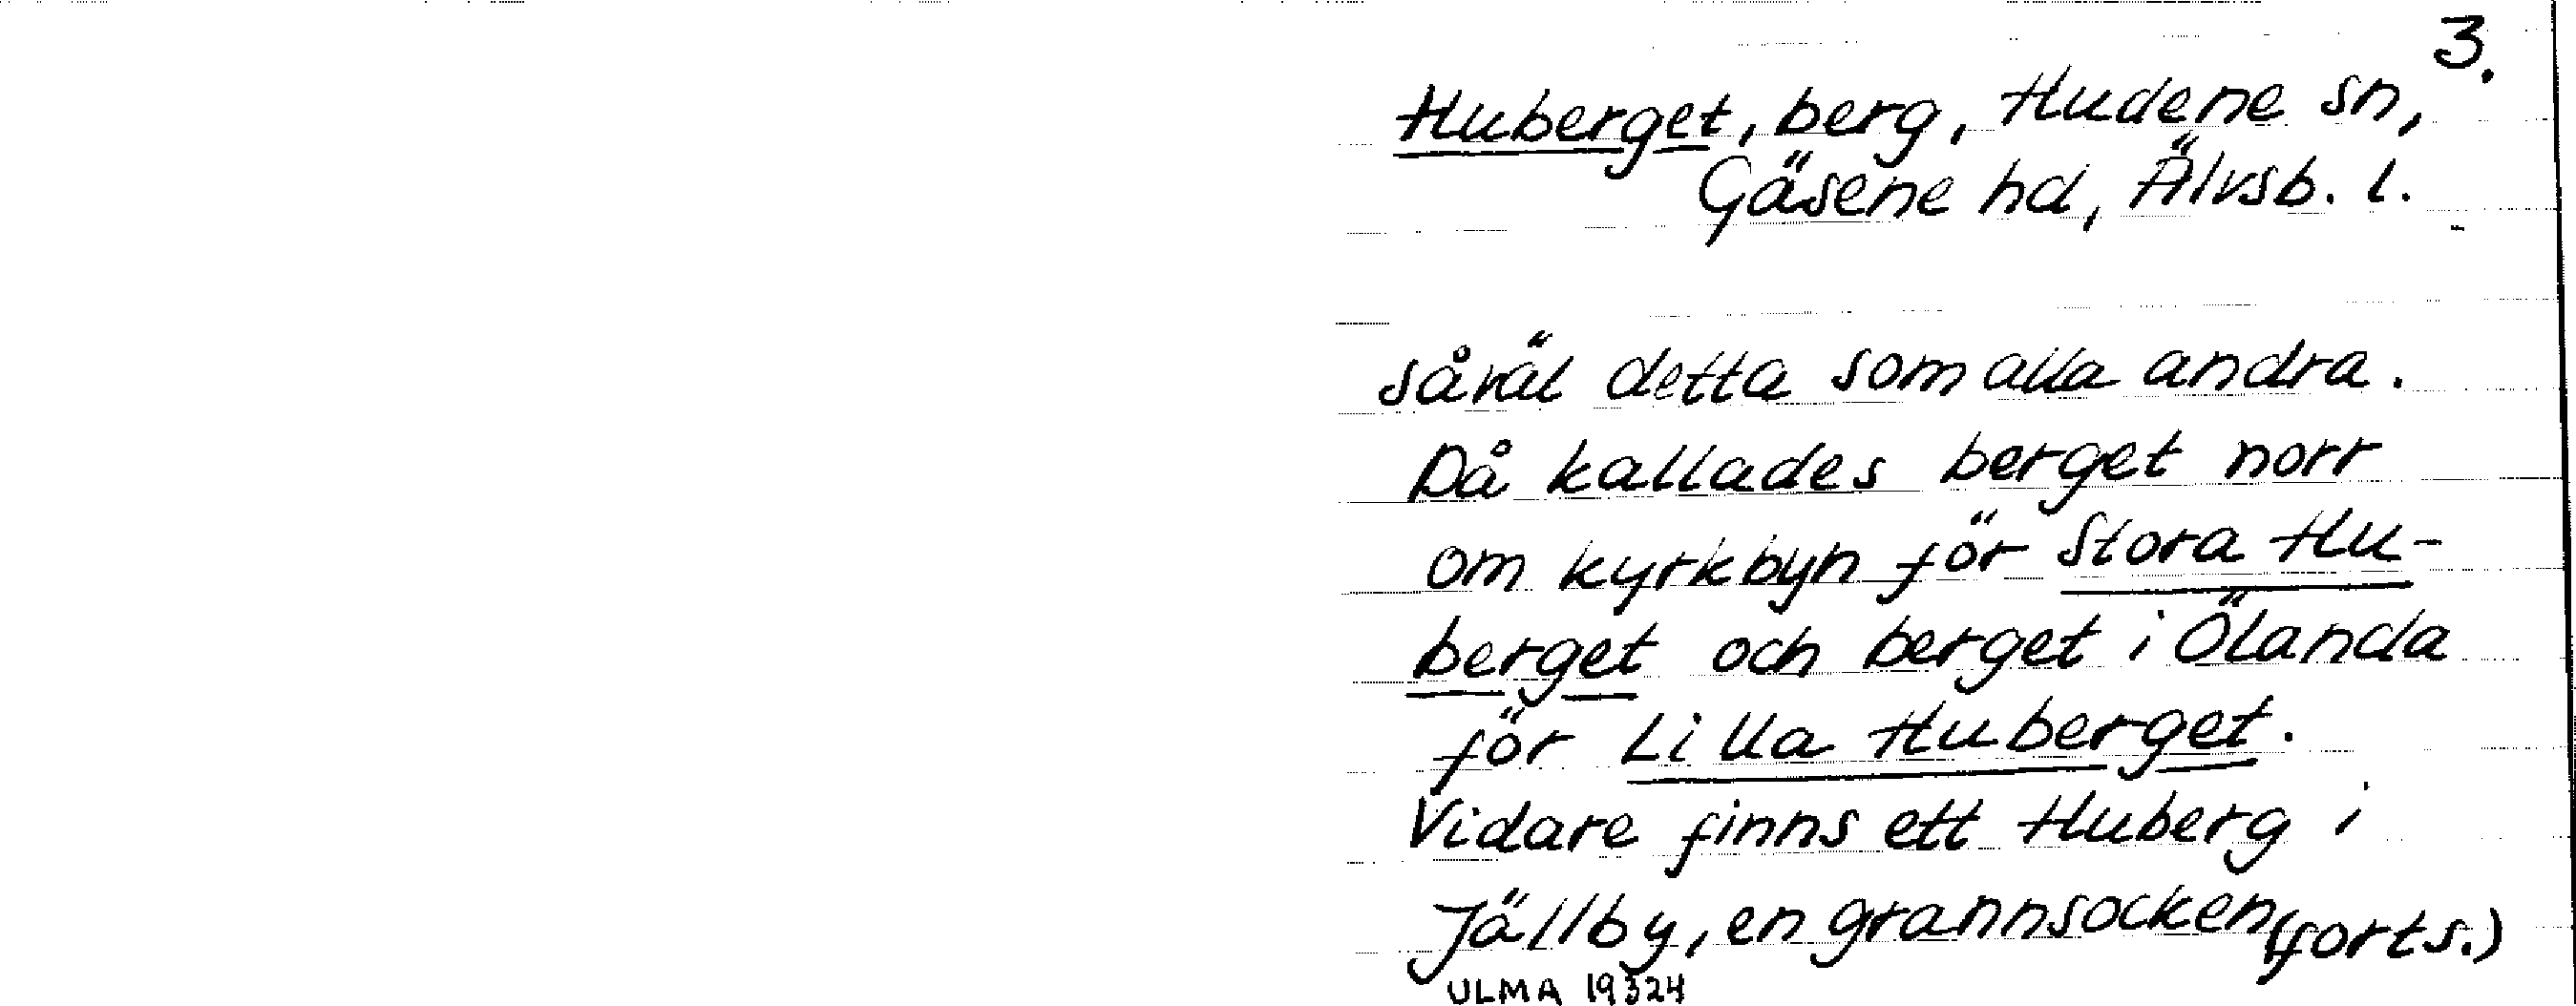 3.
Huberget, berg, Hudene sn,
Gäsene hd, Älvsb. l.
såväl detta som alla andra.
Då kallades berget norr
om kyrkbyn för Stora Hu-
berget och berget i Ölanda
för Lilla Huberget.
Vidare finns ett Huberg i
Jällby, en grannsocken (forts.)
ULMA 19324